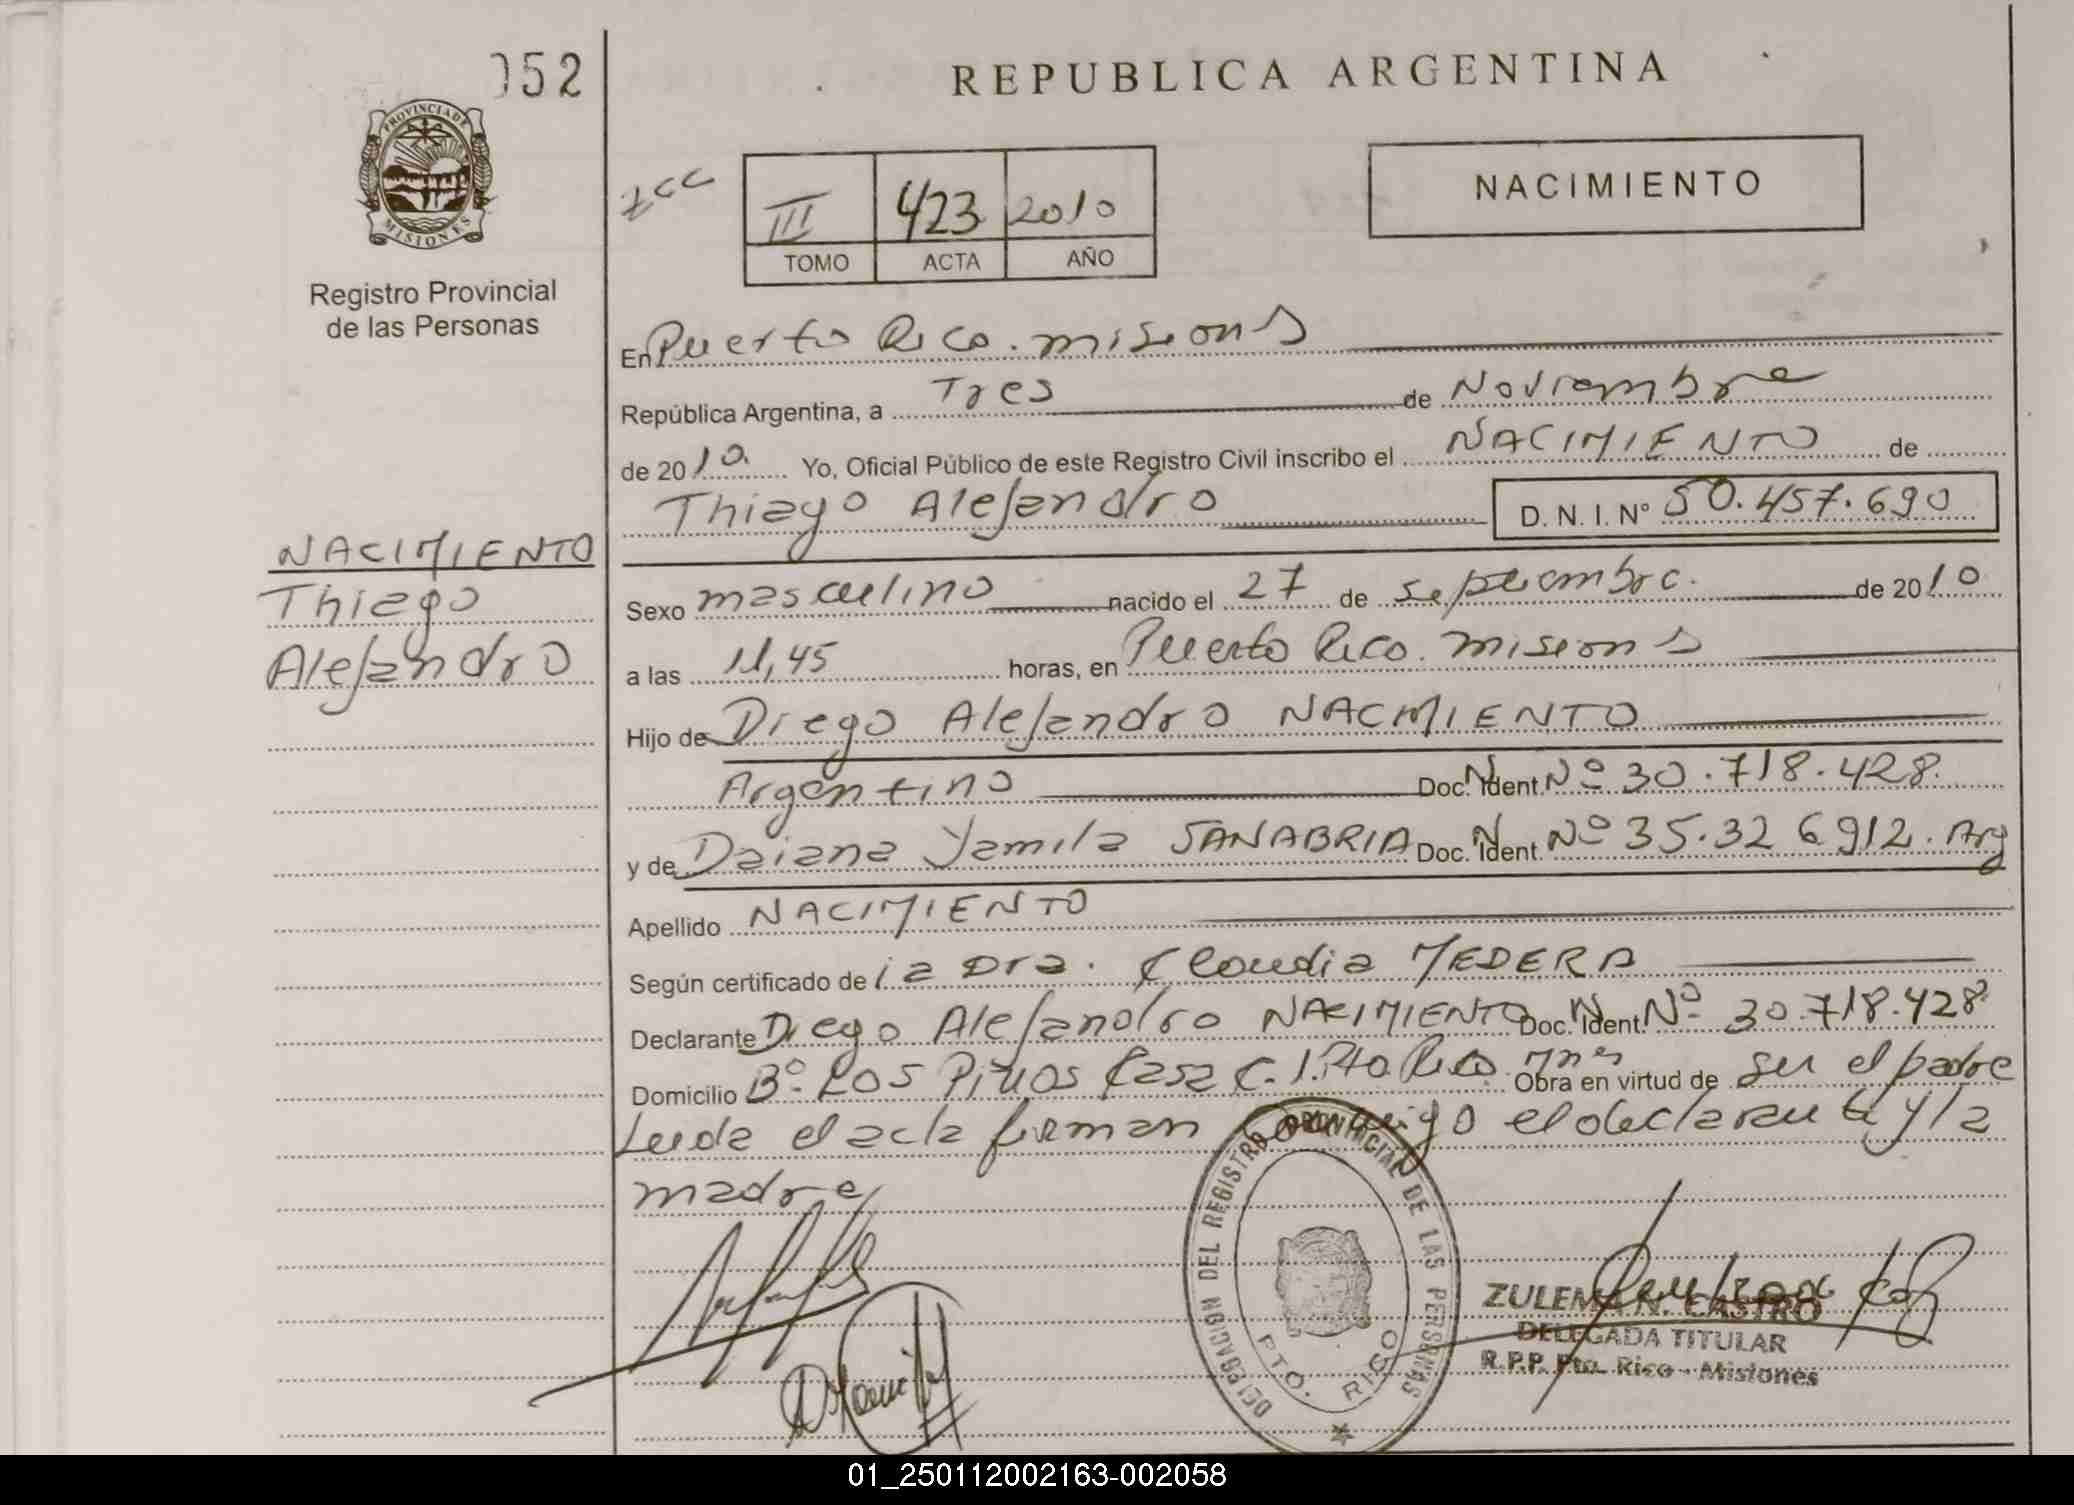 052
REPUBLICA ARGENTINA
PROVINCIA DE
MISIONES
Registro Provincial
de las Personas
III 423 2010
TOMO ACTA AÑO
NACIMIENTO
En Puerto Rico. misions
República Argentina, a Tres de Noviembre
de 2010. Yo, Oficial Público de este Registro Civil inscribo el NACIMIENTO de
Thiago Alejandro D. N. I. Nº 50.457.690
NACIMIENTO
Thiago
Alejandro
Sexo masculino nacido el 27 de septiembre. de 2010
a las 11,45 horas, en Puerto Rico. misions
Hijo de Diego Alejandro NACIMIENTO
Argentino Doc. N. Ident. Nº 30.718.428.
y de Daiana Yamila SANABRIA Doc. N. Ident. Nº 35.326912. Arg
Apellido NACIMIENTO
Según certificado de la Dra. Claudia MEDERA
Declarante Diego Alejandro NACIMIENTO Doc. N. Ident. Nº 30.718.428
Domicilio Bº. Los Pinos Casa C. 1. Pto Rico Mnes Obra en virtud de ser el padre
Leida el acta firman conmigo el declarante y la
madre
DELEGACION DEL REGISTRO PROVINCIAL DE LAS PERSONAS
PTO. RICO
ZULEMA N. CASTRO
DELEGADA TITULAR
R.P.P. Pto. Rico - Misiones
01_250112002163-002058